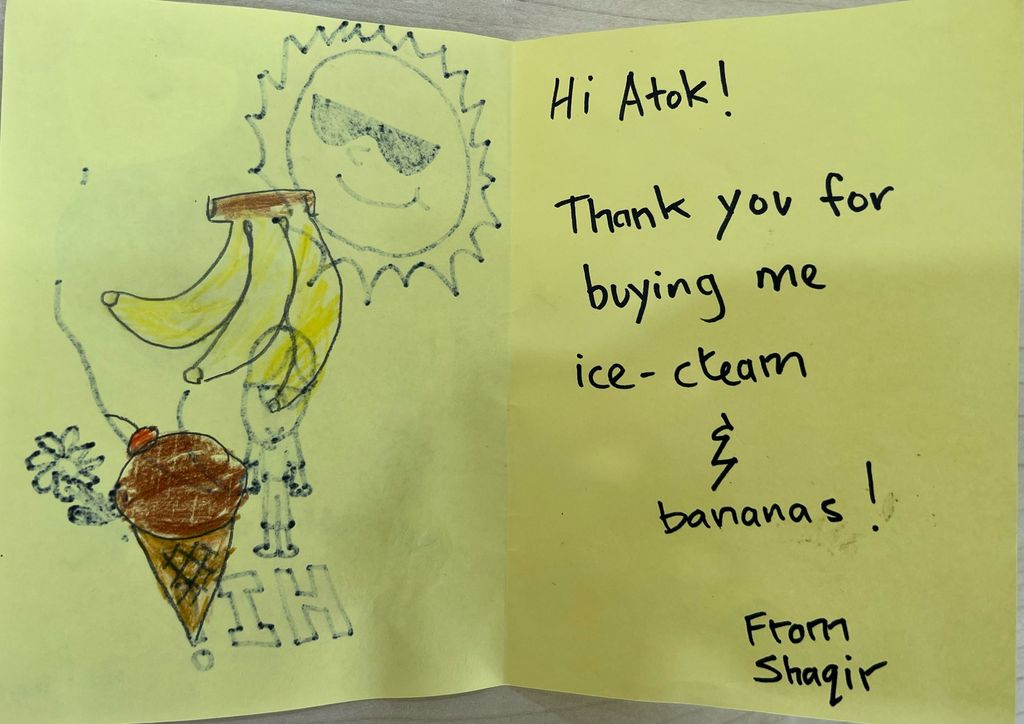 Hi Atok!
Thank you for
buying me
ice-cream
&
bananas!
From
Shaqir
HI!